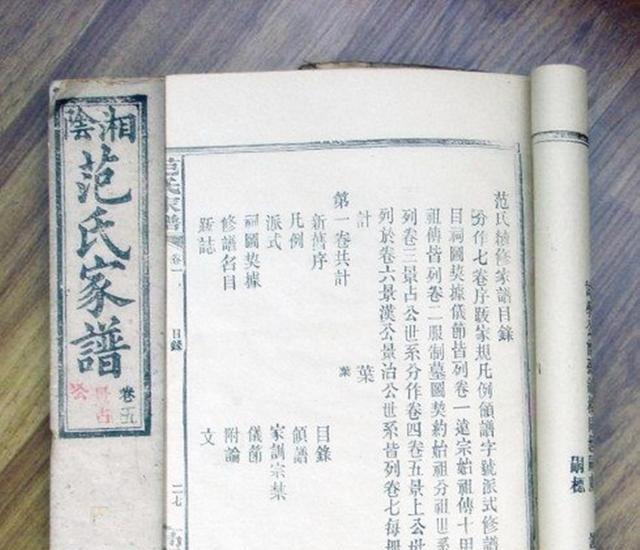 湘陰
范氏家譜
卷五
景占
公
范氏續修家譜目錄
分作七卷序跋家規凡例領譜字號派式修譜
目祠圖契據儀節皆列卷一遠宗始祖傳十甲
祖傳皆列卷二服制墓圖契約始祖分祖世系
列卷三景占公世系分作卷四卷五景上公世
列於卷六景漢公景治公世系皆列卷七每冊
計 葉
第一卷共計 葉
新舊序 目錄
凡例 領譜
派式 家訓宗禁
祠圖契據 儀節
修譜名目 附論
文
范氏家譜
卷一
目錄
二七
嗣標